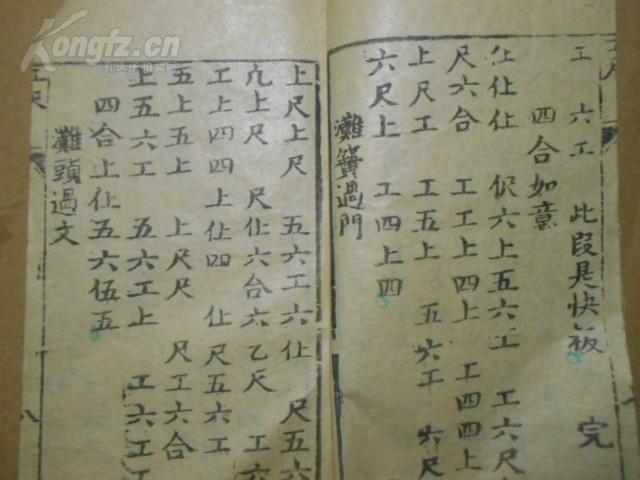 Kongfz.cn
孔夫子旧书网
工 六工 此段是快板 完
四合如意
仩仩仩 伬六上五六工 工六尺
尺六合 工工上四上 工四四上
上尺工 工五上 五六工 六尺
六尺上 工四上四
灘簧過門
上尺上尺 五六工六仩 尺五六
凢上尺 尺仩六合六 乙尺 工六
工上四四上仩四 仩尺五六工
五上五上 上尺尺 尺工六合
上五六工 五六工上 工六工工
四合上仩五六伍五
灘頭過文
工尺
八